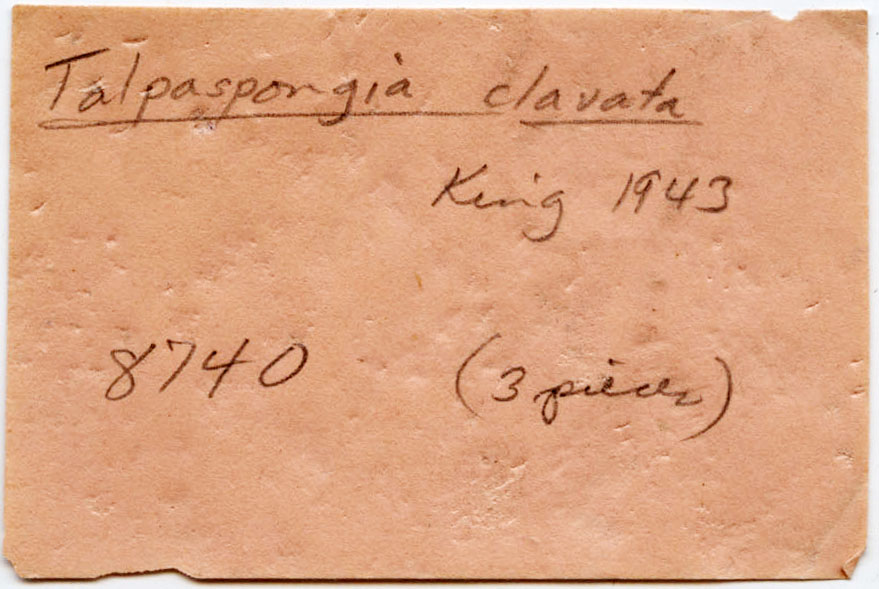 Talpaspongia clavata
King 1943
8740 (3 pieces)